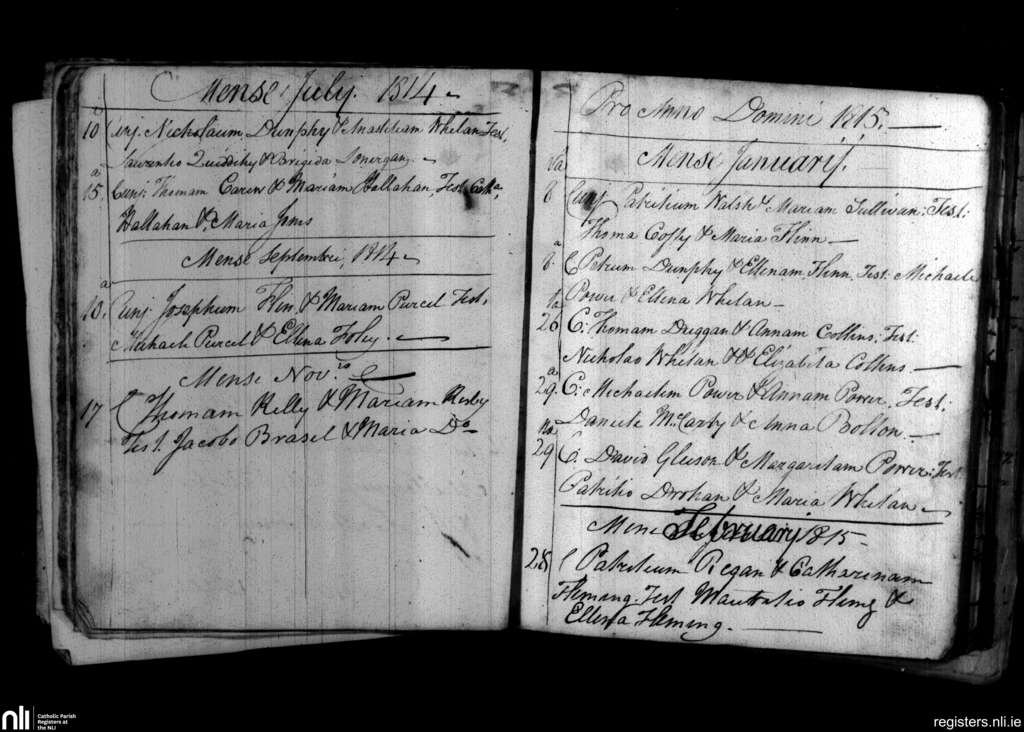 Mense July. 1814
10 Cunj. Nicholaum Dunphy & Anastatiam Whelan Test.
Laurentio & Brigida Lonergan
15. Cunj: Thomam Carew & Mariam Hallahan, Test.
Hallahan & Maria
Mense Septembri, 1814
10. Cunj. Josephum Flin, & Mariam Purcel Test.
Michaele Purcel & Ellena Foley.
Mense Nov.
17 C Thomam Kelly & Mariam
Test. Jacobo Brasel & Maria Do
Pro Anno Domini 1815.
Mense Januarij.
8 Cunj Patritium Walsh & Mariam Sullivan: Test:
Thoma Coffy & Maria Flinn
8. C Petrum Dunphy & Ellenam Flinn. Test: Michaele
Power & Ellena Whelan
26 C: Thomam Duggan & Annam Collins: Test:
Nicholao Whelan & Elizabeta Collins
29. C: Michaelem Power & Annam Power. Test:
Daniele McCarty & Anna Bolton.
29 C. David Gleeson & Margaritam Power: Test
Patritio Drohan & Maria Whelan
Mense February 1815
28 C Patritium Regan & Catharinam
Fleming. Test Fleming &
Ellena Fleming.
nli
Catholic Parish
Registers at
the NLI
registers.nli.ie